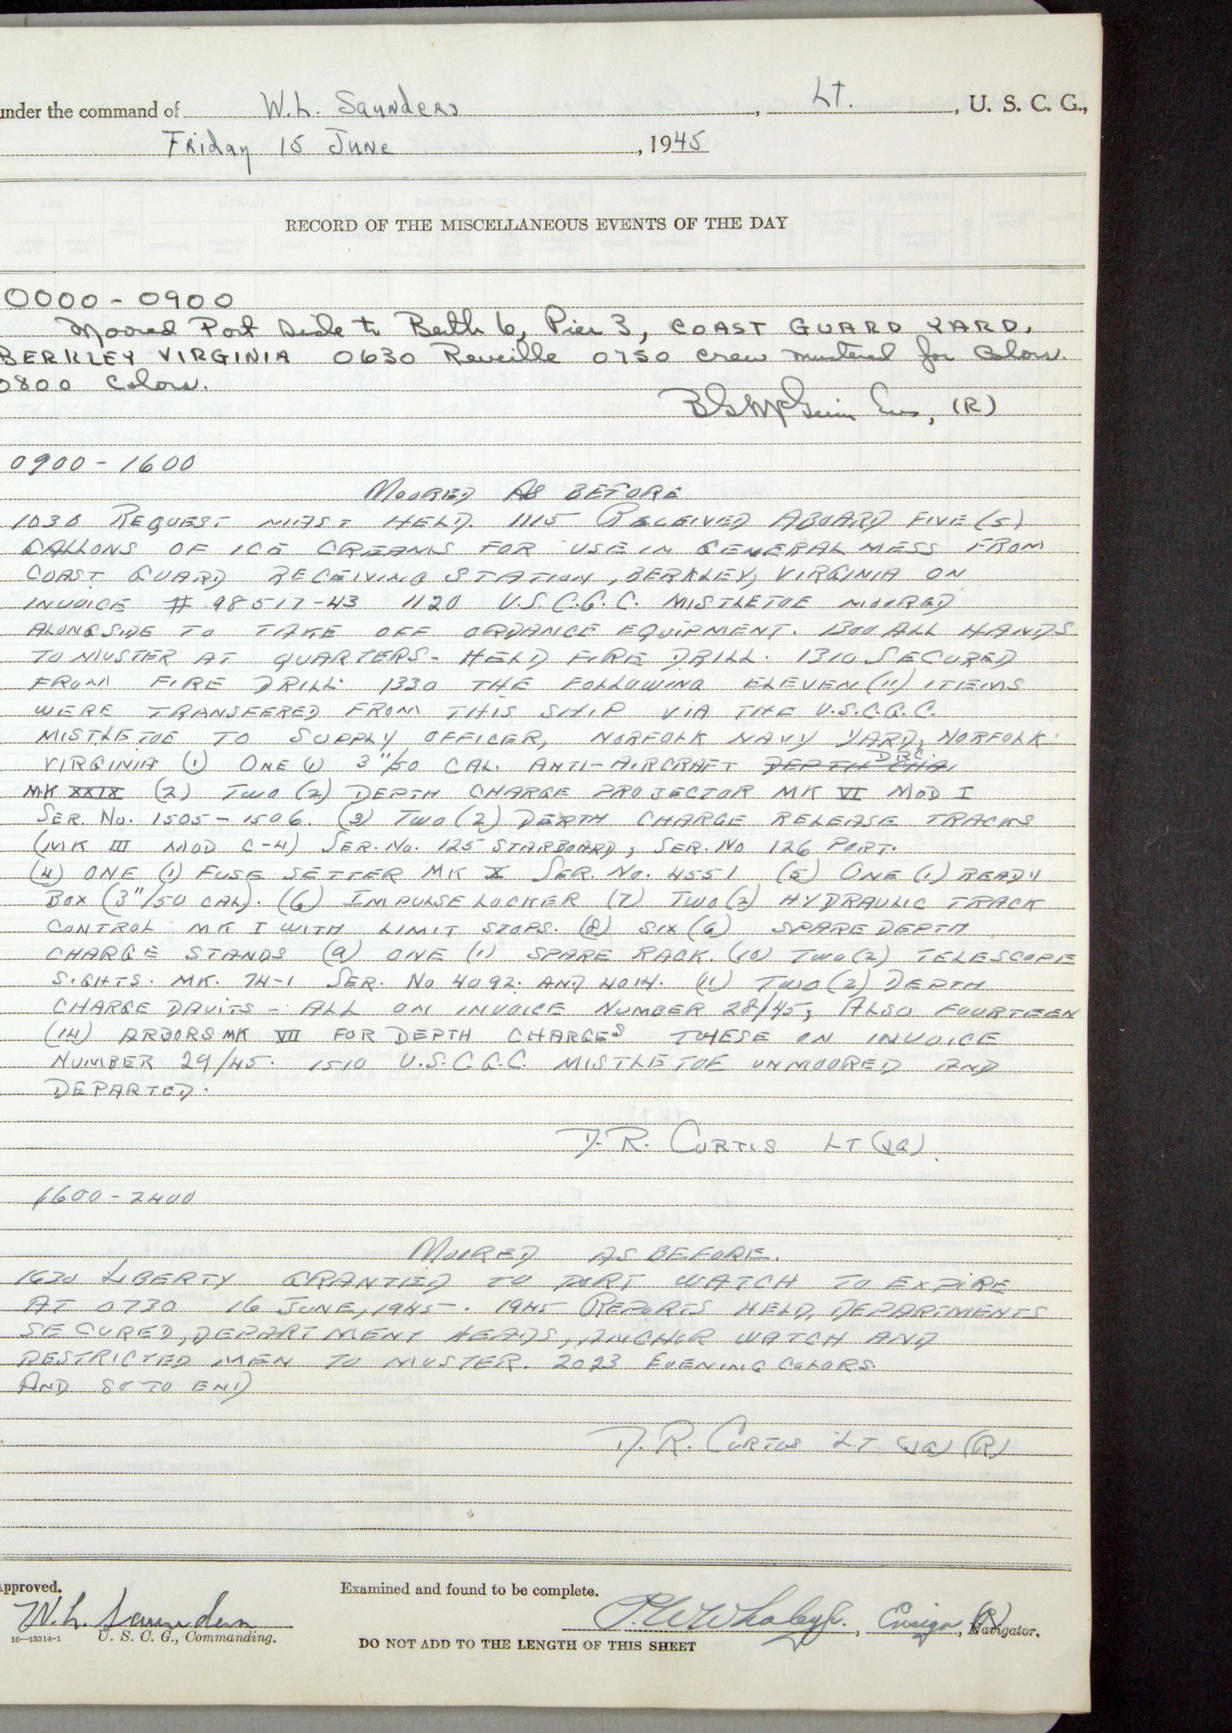 under the command of W.L. Saunders, Lt., U. S. C. G.,
Friday 15 June, 1945
RECORD OF THE MISCELLANEOUS EVENTS OF THE DAY
0000-0900
Moored Port Side to Berth 6, Pier 3, COAST GUARD YARD,
BERKLEY VIRGINIA 0630 Reveille 0750 crew mustered for Colors.
0800 Colors.
Ens, (R)
0900-1600
MOORED AS BEFORE
1030 REQUEST MAST HELD. 1115 RECEIVED ABOARD FIVE (5)
GALLONS OF ICE CREAMS FOR USE IN GENERAL MESS FROM
COAST GUARD RECEIVING STATION, BERKLEY, VIRGINIA ON
INVOICE # 98517-43 1120 U.S.C.G.C. MISTLETOE MOORED
ALONGSIDE TO TAKE OFF ORDANCE EQUIPMENT. 1300 ALL HANDS
TO MUSTER AT QUARTERS- HELD FIRE DRILL. 1310 SECURED
FROM FIRE DRILL. 1330 THE FOLLOWING ELEVEN (11) ITEMS
WERE TRANSFERED FROM THIS SHIP VIA THE U.S.C.G.C.
MISTLETOE TO SUPPLY OFFICER, NORFOLK NAVY YARD, NORFOLK
VIRGINIA (1) ONE (1) 3"/50 CAL. ANTI-AIRCRAFT DEPTH CHA.
MK XXIX (2) TWO (2) DEPTH CHARGE PROJECTOR MK VI MOD I
SER. NO. 1505-1506. (3) TWO (2) DEPTH CHARGE RELEASE TRACKS
(MK III MOD C-4) SER. NO. 125 STARBOARD, SER. NO 126 PORT.
(4) ONE (1) FUSE SETTER MK X SER. NO. 4551 (5) ONE (1) READY
BOX (3"/50 CAL). (6) IMPULSE LOCKER (7) TWO (2) HYDRAULIC TRACK
CONTROL MK I WITH LIMIT STOPS. (8) SIX (6) SPARE DEPTH
CHARGE STANDS (9) ONE (1) SPARE RACK. (10) TWO (2) TELESCOPE
SIGHTS. MK. 74-1 SER. NO 4092. AND 4014. (11) TWO (2) DEPTH
CHARGE DAVITS - ALL ON INVOICE NUMBER 28/45; ALSO FOURTEEN
(14) ARBORS MK VII FOR DEPTH CHARGES THESE ON INVOICE
NUMBER 29/45. 1510 U.S.C.G.C. MISTLETOE UNMOORED AND
DEPARTED.
D.R. CURTIS LT (JG).
1600-2400
MOORED AS BEFORE.
1630 LIBERTY GRANTED TO PORT WATCH TO EXPIRE
AT 0730 16 JUNE, 1945. 1945 REPORTS HELD, DEPARTMENTS
SECURED, DEPARTMENT HEADS, ANCHOR WATCH AND
RESTRICTED MEN TO MUSTER. 2023 EVENING COLORS
AND SO TO END
D.R. CURTIS LT (JG) (R)
Approved.
W.L. Saunders
16-13314-1 U. S. C. G., Commanding.
Examined and found to be complete.
P.W. Whaley Jr., Ensign (R), Navigator.
DO NOT ADD TO THE LENGTH OF THIS SHEET